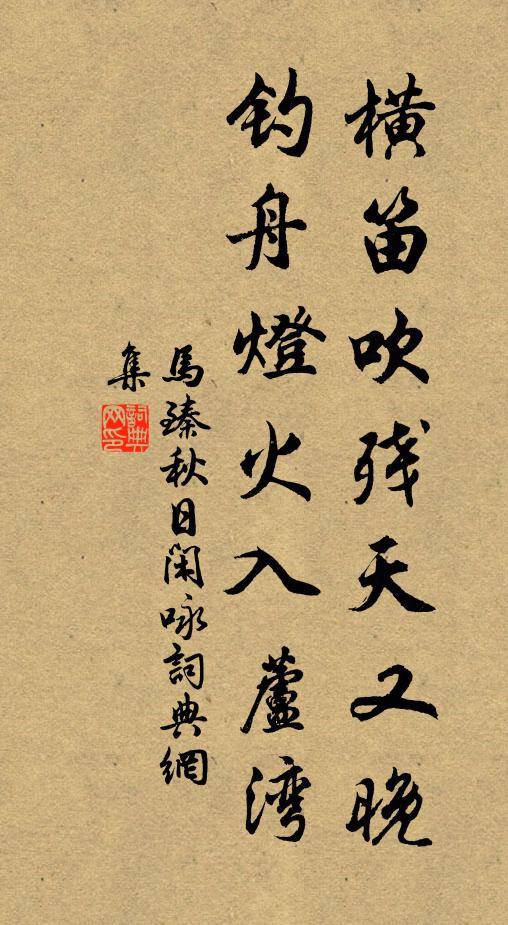 横笛吹残天又晚
钓舟燈火入蘆湾
馬臻秋日閑咏詞典網
集
詞典网印